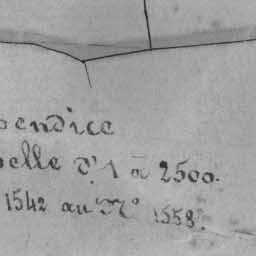 pendice
elle d'1 à 2500.
1542 au Nº 1558.